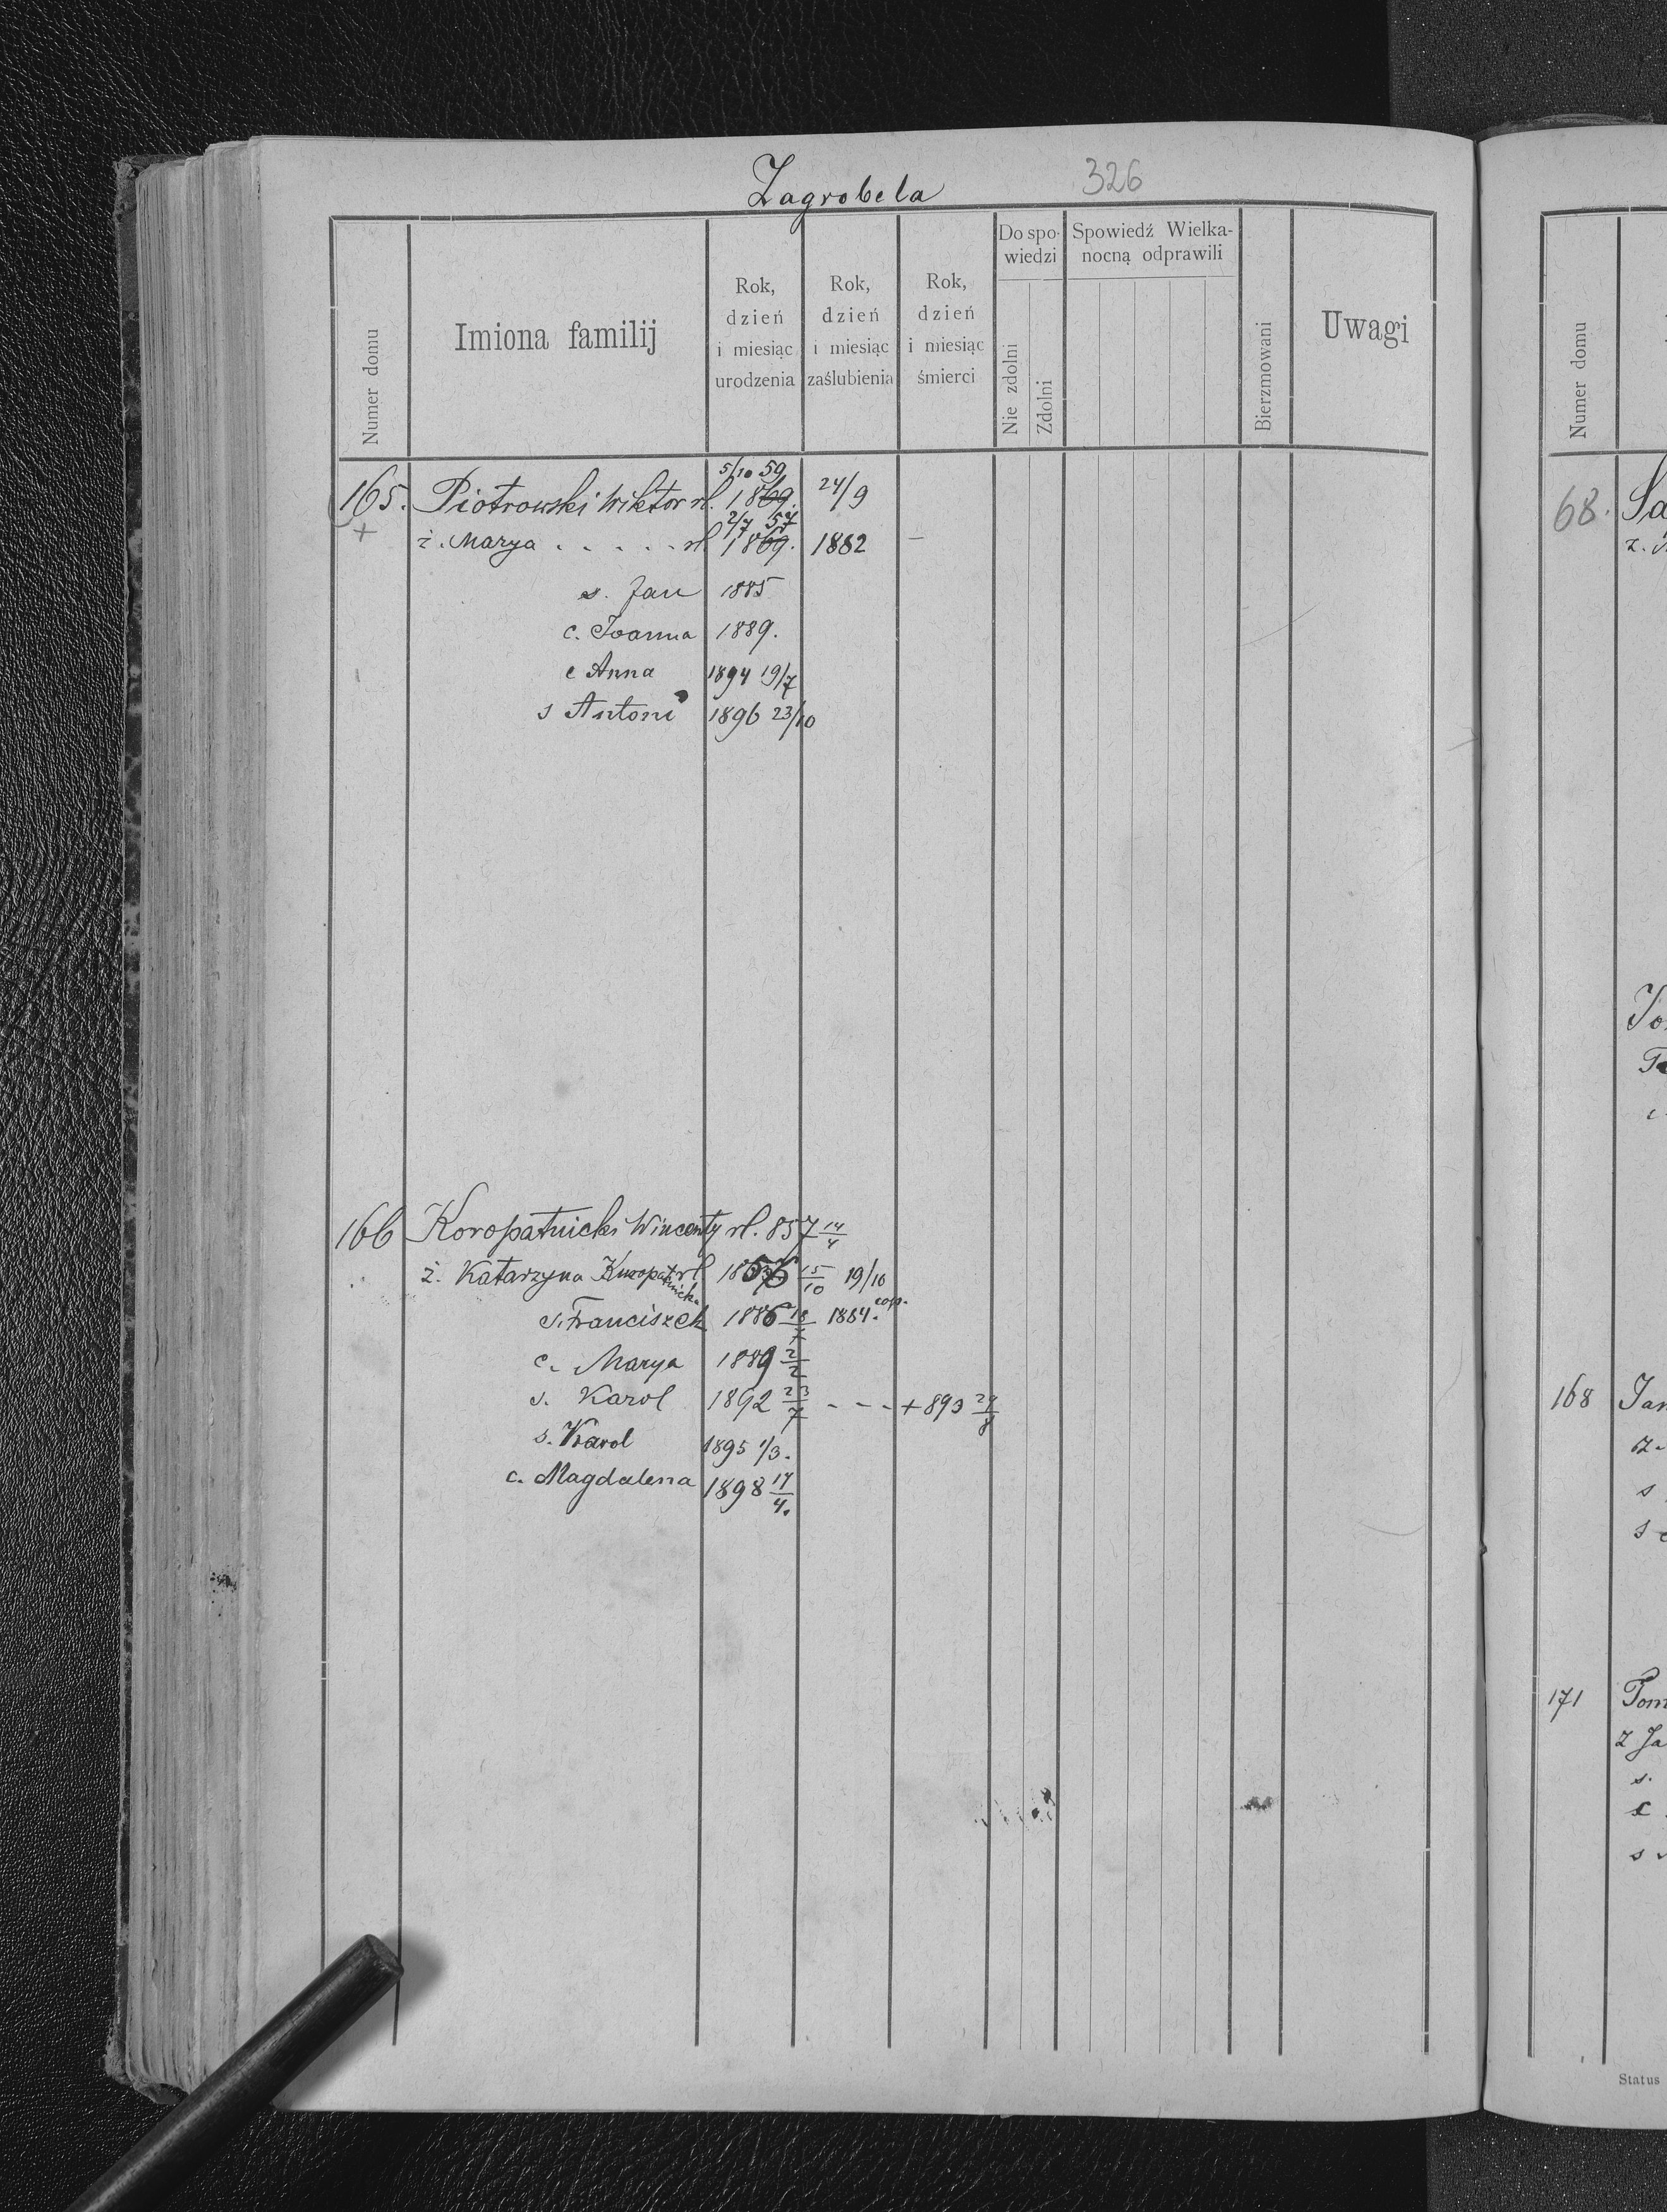 Zagrobela 326
Numer domu
Imiona familij
Rok, dzień i miesiąc urodzenia
Rok, dzień i miesiąc zaślubienia
Rok, dzień i miesiąc śmierci
Do spowiedzi
Nie zdolni
Zdolni
Spowiedź Wielkanocną odprawili
Bierzmowani
Uwagi
5/10 59
165. Piotrowski Wiktor rł. 1869. 24/9
2/7 57
+ ż. Marya . . . . . rł. 1869. 1882 —
s. Jan 1885
c. Joanna 1889.
c Anna 1894 19/7
s Antoni 1896 23/10
166 Koropatnicki Wincenty rł. 857 14/4
ż. Katarzyna rł 1856 15/10 19/10
s. Franciszek 1886 1884. cop.
c. Marya 1889 2/2
s. Karol 1892 23/7 - - - + 893 29/8
s. Karol 1895 1/3.
c. Magdalena 1898 17/4.
Numer domu
68. Sa
ż.
168 Jan
ż.
s
s
171 Tom
ż Ja
s.
c
s
Status